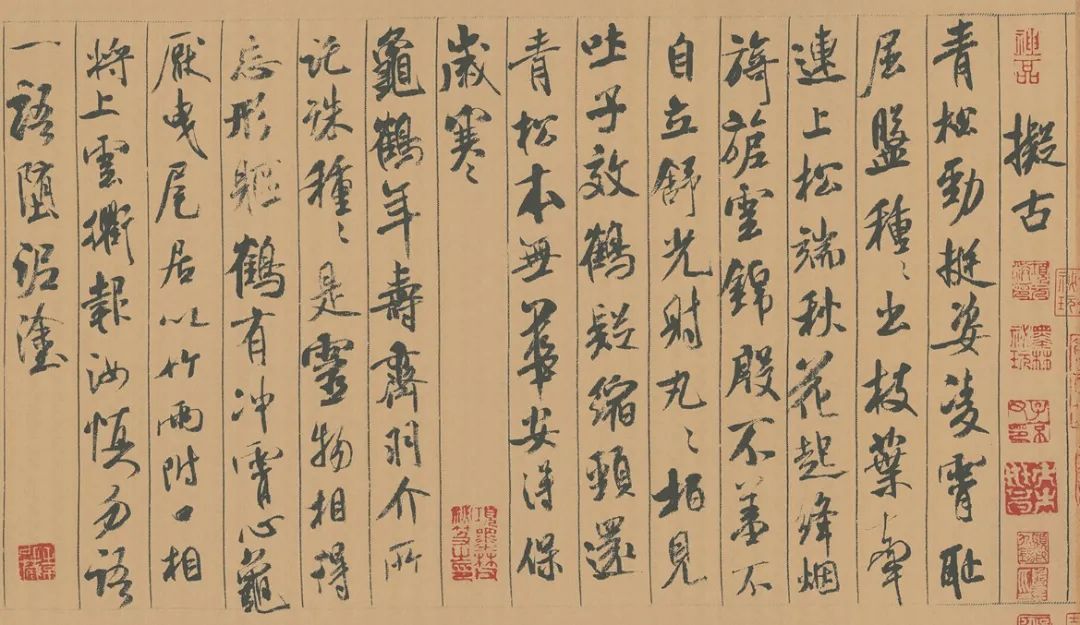 神品
擬古
青松勁挺姿凌霄恥
屈盤種〻出枝葉牽
連上松端秋花起絳烟
旖旎雲錦殷不羞不
自立舒光射丸〻柏見
吐子效鶴疑縮頸還
青松本無華安得保
歲寒
龜鶴年壽齊羽介所
託殊種〻是靈物相得
忘形軀鶴有冲霄心龜
厭曳尾居以竹兩附口相
將上雲衢報汝慎勿語
一語墮泥塗